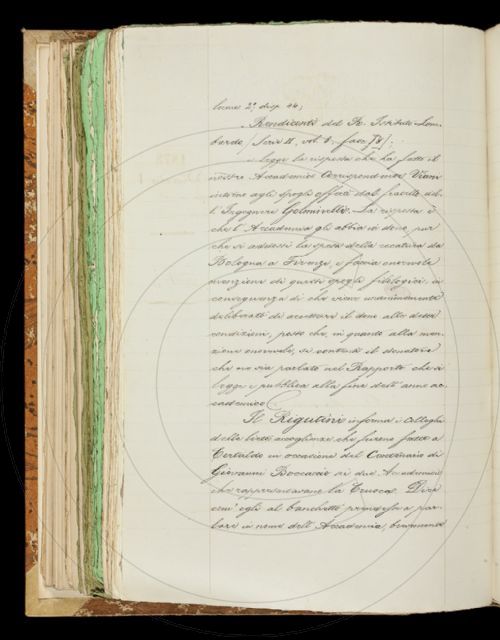 lume 2º, disp. 44;
Rendiconti del R. Istituto Lom-
bardo (Serie II, vol. I, fasc.
Si legge la risposta che ha fatto il
nostro Accademico Corrispondente
intorno agli spogli offerti dal fratello del-
l'Ingegnere La risposta è
che l'Accademia gli abbia in dono, pur
che si addossi la spesa della recatura da
Bologna a Firenze, e faccia onorevole
menzione di questi spogli filologici; in
conseguenza di che viene unanimemente
deliberato di accettare il dono alle dette
condizioni, posto che, in quanto alla men-
zione onorevole, si contenti il donatore
che ne sia parlato nel Rapporto che si
legge e pubblica alla fine dell'anno ac-
cademico.
Il Rigutini informa i Colleghi
delle liete accoglienze che furono fatte a
Certaldo in occasione del Centenario di
Giovanni Boccaccio ai due Accademici
che rappresentavano la Crusca. Dice
com'egli al banchetto prendesse a par-
lare in nome dell'Accademia, brevemente